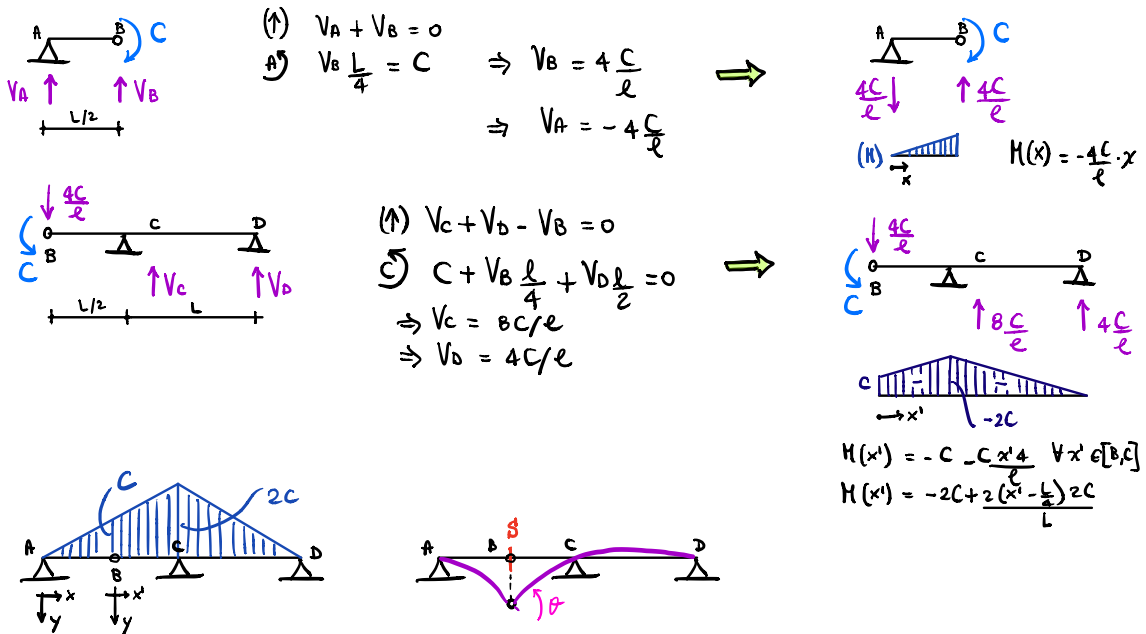 A B C
V_A V_B
L/2
(↑) V_A + V_B = 0
A↺ V_B L/4 = C ⇒ V_B = 4 C/ℓ
⇒ V_A = -4 C/ℓ
A B C
4C/ℓ 4C/ℓ
(M) x M(x) = -4C/ℓ · x
4C/ℓ
C B C D
V_C V_D
L/2 L
(↑) V_C + V_D - V_B = 0
C↺ C + V_B ℓ/4 + V_D ℓ/2 = 0
⇒ V_C = 8C/ℓ
⇒ V_D = 4C/ℓ
4C/ℓ
C B C D
8C/ℓ 4C/ℓ
C x' -2C
M(x') = -C - C x'4/ℓ ∀x' ∈ [B,C]
M(x') = -2C + 2(x' - L/4) 2C/L
C 2C
A B C D
x x'
y y
S
A B C D
θ